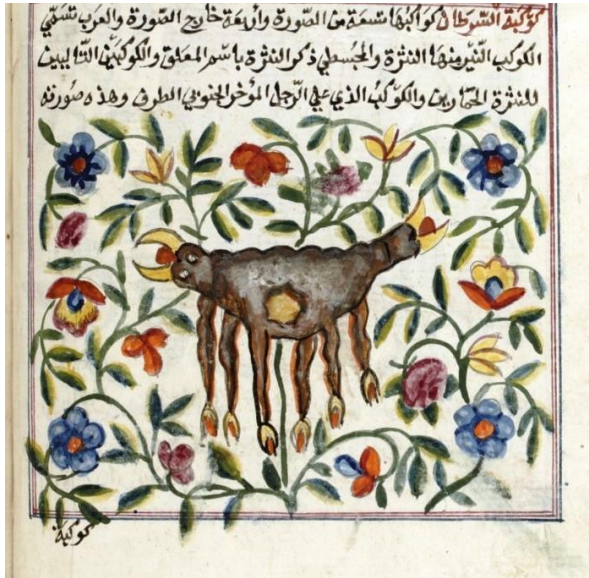 كوكبة السرطان كواكبها تسعة من الصّورة وأربعة خارج الصّورة والعرب تسمّي
الكوكب النّيّر منها النثرة والمجسطي ذكر النثرة باسم المعلق والكوكبين التاليين
للنثرة الحمارين والكوكب الذي على الرّجل المؤخر الجنوبي الطرف وهذه صورته
كوكبة